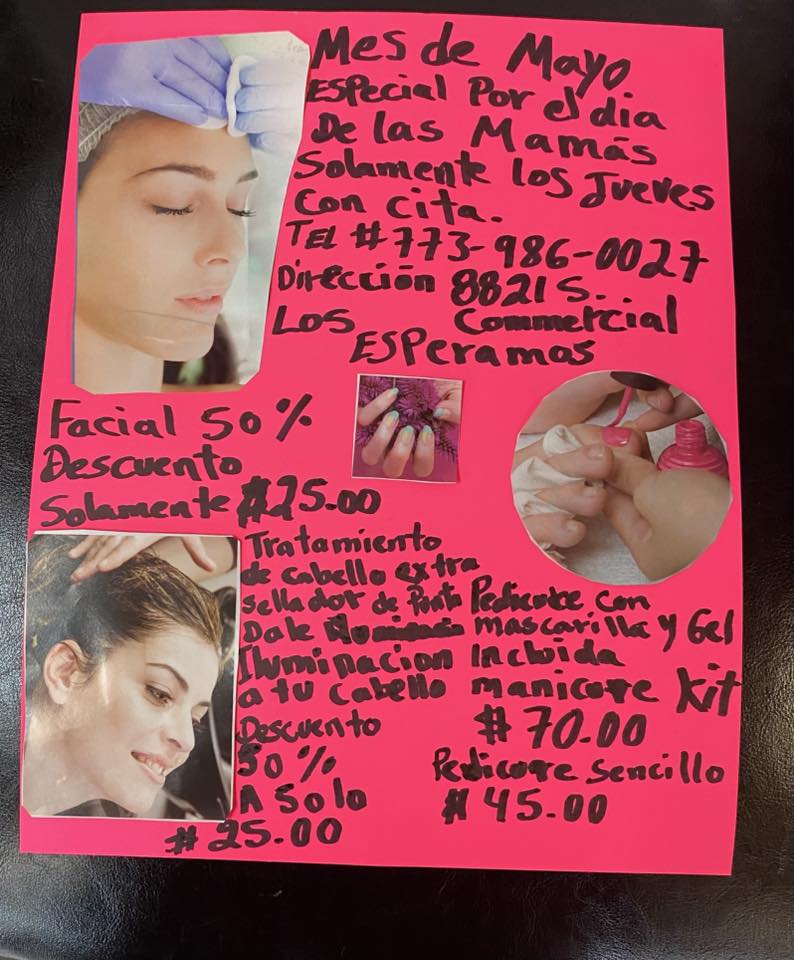 Mes de Mayo
Especial Por el dia
De las Mamás
Solamente los Jueves
Con cita.
TEL # 773-986-0027
Dirección 8821 S..
Commercial
Los Esperamos
Facial 50%
Descuento
Solamente $25.00
Tratamiento
de cabello extra
sellador de Punta
Dale
Iluminacion
a tu cabello
Descuento
50%
A Solo
$25.00
Pedicure con
mascarilla y Gel
Incluida
manicure Kit
$70.00
Pedicure Sencillo
$45.00